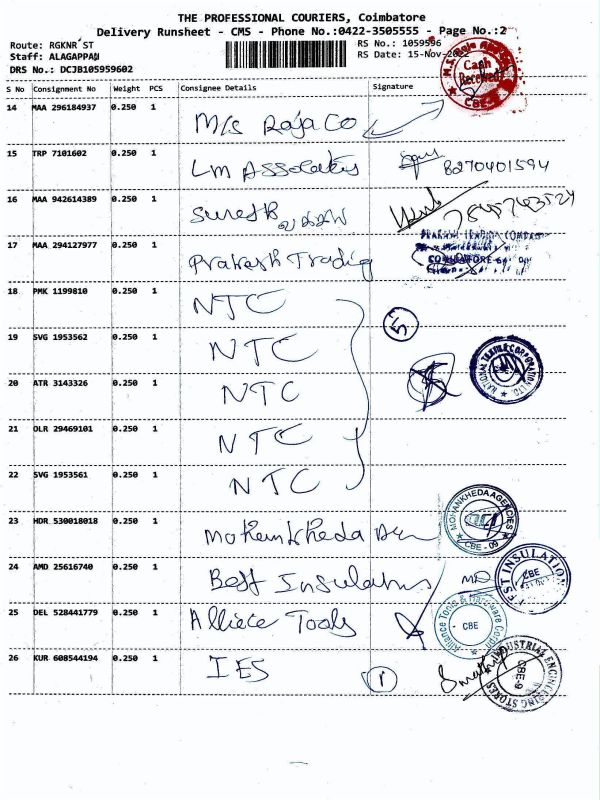 THE PROFESSIONAL COURIERS, Coimbatore
Delivery Runsheet - CMS - Phone No.:0422-3505555 - Page No.:2
Route: RGKNR ST RS No.: 1059596
Staff: ALAGAPPAN RS Date: 15-Nov-2022
DRS No.: DCJB105959602
S No Consignment No Weight PCS Consignee Details Signature
Cash Received
CBE-
14 MAA 296184937 0.250 1 M/s Raja Co
15 TRP 7101602 0.250 1 8270401594
16 MAA 942614389 0.250 1 Suresh B
17 MAA 294127977 0.250 1 Prakash Trading
PRAKASH TRADING COMPANY
COIMBATORE
18 PMK 1199810 0.250 1 NTC
5
19 SVG 1953562 0.250 1 NTC
NATIONAL TEXTILE CORPORATION LTD.
20 ATR 3143326 0.250 1 NTC
21 OLR 29469101 0.250 1 NTC
22 SVG 1953561 0.250 1 NTC
23 HDR 530018018 0.250 1
MOHANKHEDA AGENCIES
CBE - 09
24 AMD 25616740 0.250 1 Best Insulations
BEST INSULATION
CBE
25 DEL 528441779 0.250 1 Alliece Tools
Alliance Tools & Hardware Corpn
CBE
26 KUR 608544194 0.250 1 IES
1
INDUSTRIAL ENGINEERING STORES
CBE-9